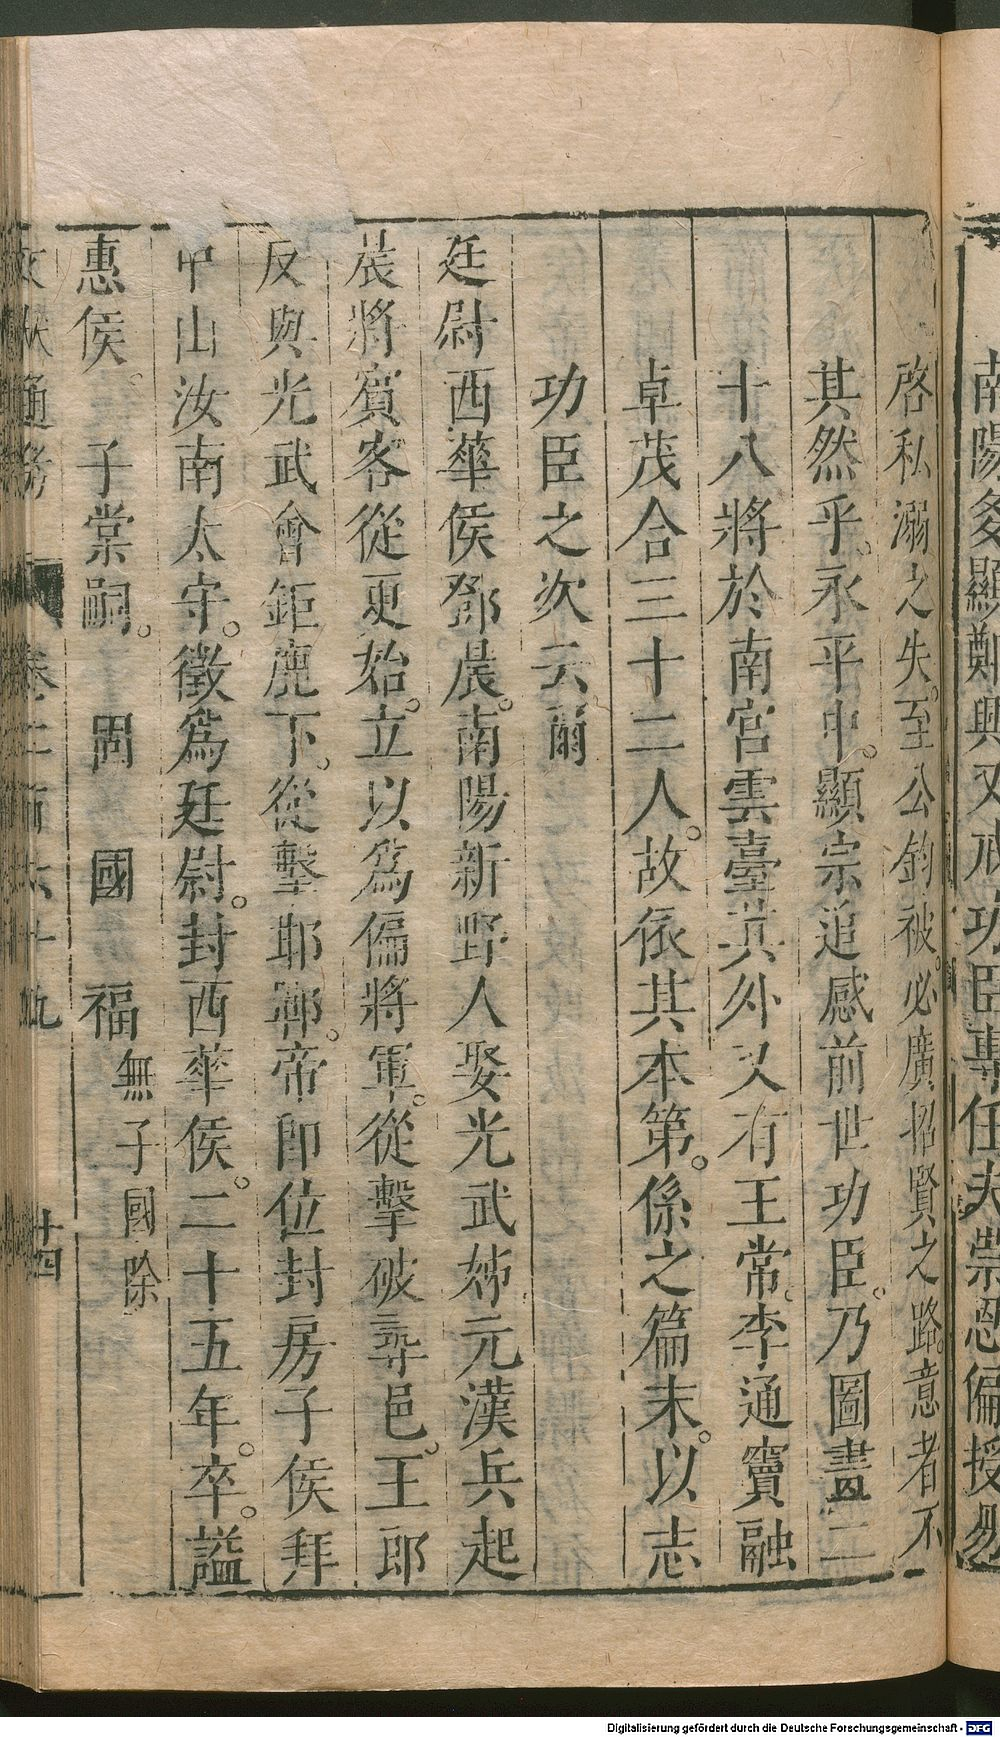 南陽多顯鄭興又戒功臣專任夫崇恩偏授易
啓私溺之失。至公鈞被。必廣招賢之路。意者不
其然乎。永平中。顯宗追感前世功臣。乃圖畫二
十八將於南宮雲臺其外又有王常。李通竇融
卓茂合三十二人。故依其本第。係之篇末。以志
功臣之次云爾
廷尉西華侯鄧晨。南陽新野人娶光武姊元漢兵起
晨將賓客從更始。立以為偏將軍。從擊破尋邑。王郎
反與光武會鉅鹿下。從擊邯鄲。帝即位封房子侯拜
中山汝南太守。徵為廷尉。封西華侯。二十五年。卒。謚
惠侯。 子棠嗣。 固 國 福 無子國除
文獻通考 卷二百六十九 十四
Digitalisierung gefördert durch die Deutsche Forschungsgemeinschaft - DFG